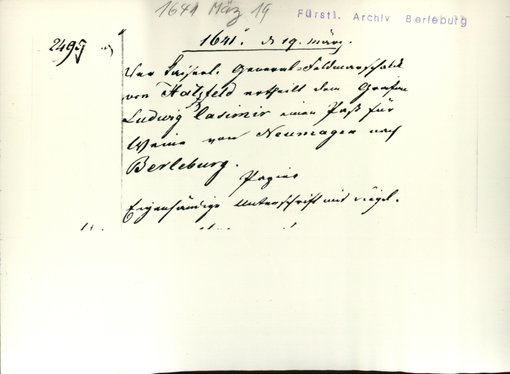 1641 März 19
Fürstl. Archiv Berleburg
2495
1641. d 19. März.
Der Kaiserl. General-Feldmarschall
von Hatzfeld ertheilt dem Grafen
Ludwig Casimir einen Paß für
Weine von Neumagen nach
Berleburg.
Papier
Eigenhändige Unterschrift mit Siegel.